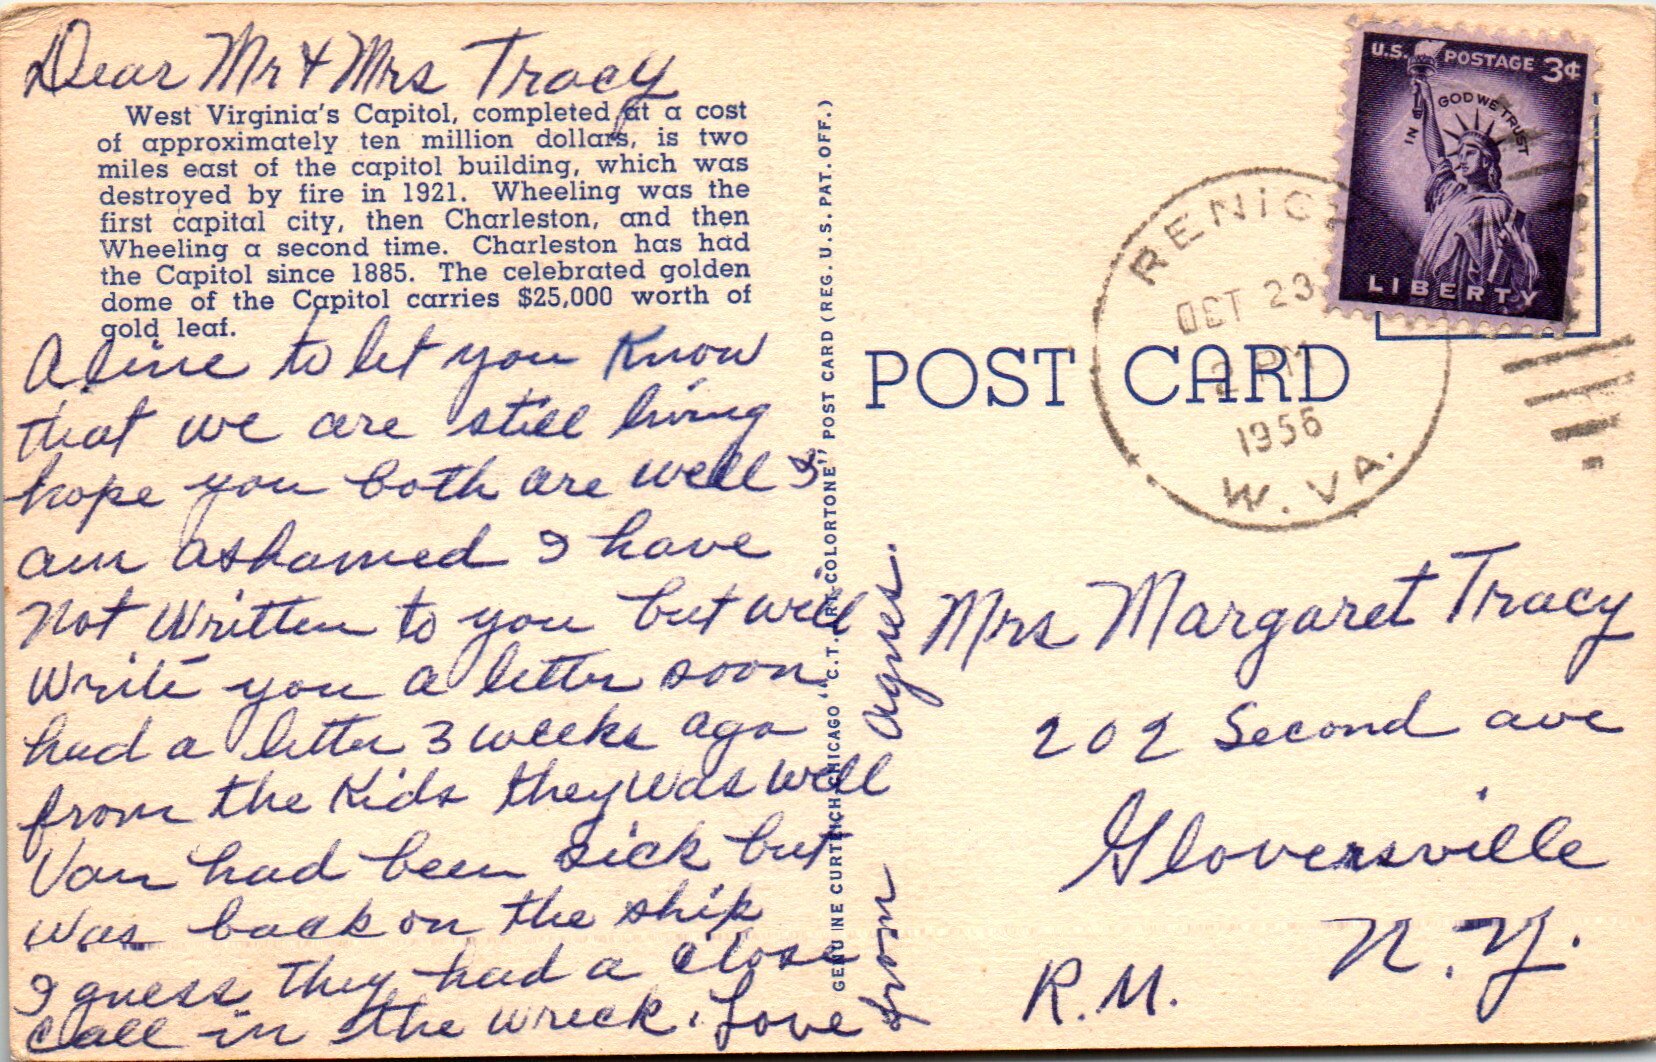 Dear Mr & Mrs Tracy
West Virginia's Capitol, completed at a cost
of approximately ten million dollars, is two
miles east of the capitol building, which was
destroyed by fire in 1921. Wheeling was the
first capital city, then Charleston, and then
Wheeling a second time. Charleston has had
the Capitol since 1885. The celebrated golden
dome of the Capitol carries $25,000 worth of
gold leaf.
A line to let you Know
that we are still living
hope you both are well I
am ashamed I have
Not Written to you but will
Write you a letter soon.
had a letter 3 weeks ago
from the Kids they was well
Van had been sick but
was back on the ship
I guess they had a close
call in the wreck. Love
from Agnes.
GENUINE CURTEICH-CHICAGO "C.T. ART-COLORTONE" POST CARD (REG. U.S. PAT. OFF.)
POST CARD
U.S. POSTAGE 3¢
IN GOD WE TRUST
LIBERTY
RENICK
OCT 23
2 PM
1956
W. VA.
Mrs Margaret Tracy
202 Second ave
Gloversville
N.Y.
R.M.